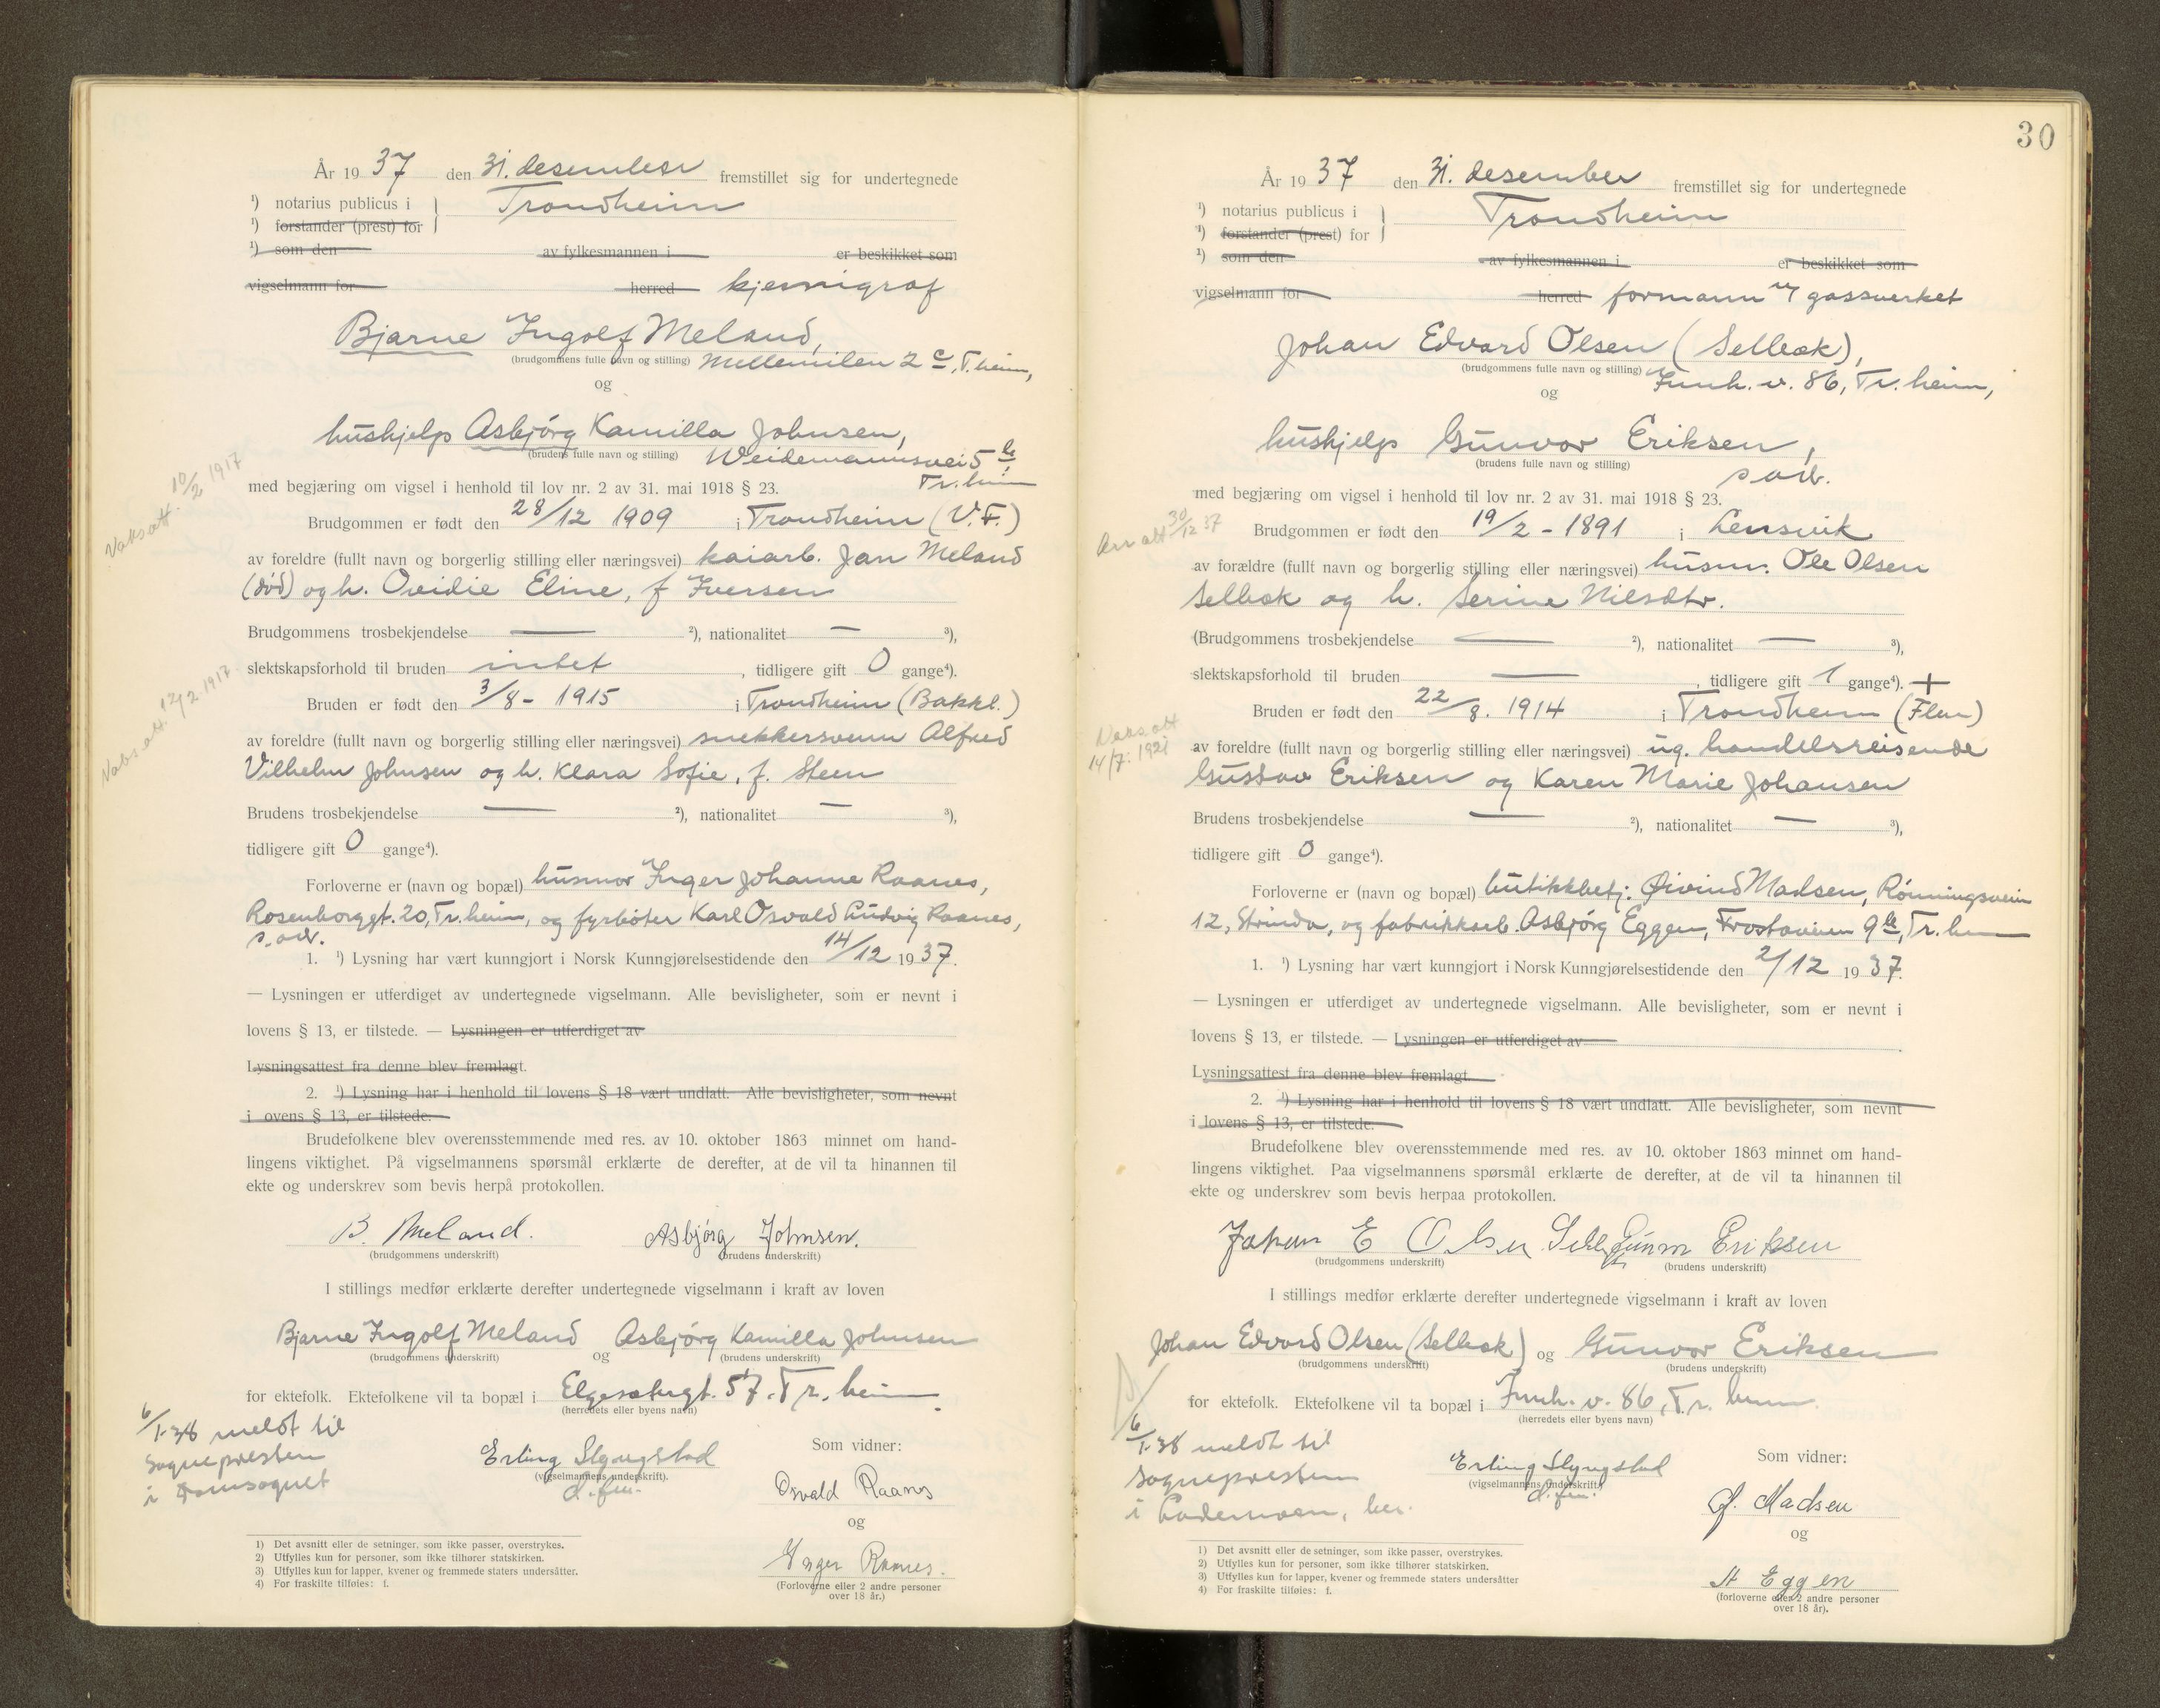 År 1937 den 31. desember fremstillet sig for undertegnede
¹) notarius publicus i } Trondheim
¹) forstander (prest) for
¹) som den av fylkesmannen i er beskikket som
vigselmann for herred kjemigraf
Bjarne Ingolf Meland,
(brudgommens fulle navn og stilling) Mellemilen 2 c, T.heim,
og
hushjelp Asbjörg Kamilla Johnsen,
(brudens fulle navn og stilling) Weidemannsvei 5 b,
Tr.heim
med begjæring om vigsel i henhold til lov nr. 2 av 31. mai 1918 § 23.
Vaksatt. 10/2 1917
Brudgommen er født den 28/12 1909 i Trondheim (V.F.)
av foreldre (fullt navn og borgerlig stilling eller næringsvei) kaiarb. Jan Meland
(död) og h. Ovidie Eline, f Iversen
Brudgommens trosbekjendelse — ²), nationalitet — ³),
slektskapsforhold til bruden intet, tidligere gift 0 gange⁴).
Vaksatt. 12/2 1917
Bruden er født den 3/8 - 1915 i Trondheim (Bakkl.)
av foreldre (fullt navn og borgerlig stilling eller næringsvei) snekkersvenn Alfred
Vilhelm Johnsen og h. Klara Sofie, f. Steen
Brudens trosbekjendelse — ²), nationalitet — ³),
tidligere gift 0 gange⁴).
Forloverne er (navn og bopæl) husmor Inger Johanne Raanes,
Rosenborggt. 20, Tr.heim, og fyrböter Karl Osvald Ludvig Raanes,
s. adr.
1. ¹) Lysning har vært kunngjort i Norsk Kunngjørelsestidende den 14/12 1937.
— Lysningen er utferdiget av undertegnede vigselmann. Alle bevisligheter, som er nevnt i
lovens § 13, er tilstede. — Lysningen er utferdiget av
Lysningsattest fra denne blev fremlagt.
2. ¹) Lysning har i henhold til lovens § 18 vært undlatt. Alle bevisligheter, som nevnt
i ovens § 13, er tilstede.
Brudefolkene blev overensstemmende med res. av 10. oktober 1863 minnet om hand-
lingens viktighet. På vigselmannens spørsmål erklærte de derefter, at de vil ta hinannen til
ekte og underskrev som bevis herpå protokollen.
B. Meland. Asbjörg Johnsen.
(brudgommens underskrift) (brudens underskrift)
I stillings medfør erklærte derefter undertegnede vigselmann i kraft av loven
Bjarne Ingolf Meland og Asbjörg Kamilla Johnsen
(brudgommens underskrift) (brudens underskrift)
for ektefolk. Ektefolkene vil ta bopæl i Elgesetergt. 57. Tr. heim.
(herredets eller byens navn)
6/1-38 meldt til
sognepresten
i Domsognet
Erling Slyngstad
(vigselmannens underskrift).
d. fm.
Som vidner:
Osvald Raanes
og
Inger Raanes.
(Forloverne eller 2 andre personer
over 18 år.)
1) Det avsnitt eller de setninger, som ikke passer, overstrykes.
2) Utfylles kun for personer, som ikke tilhører statskirken.
3) Utfylles kun for lapper, kvener og fremmede staters undersåtter.
4) For fraskilte tilføies: f.
30
År 1937 den 31. desember fremstillet sig for undertegnede
¹) notarius publicus i } Trondheim
¹) forstander (prest) for
¹) som den av fylkesmannen i er beskikket som
vigselmann for herred formann v/ gassverket
Johan Edvard Olsen (Selbæk),
(brudgommens fulle navn og stilling) Innh. v. 86, Tr. heim,
og
hushjelp Gunvor Eriksen,
(brudens fulle navn og stilling)
s adr.
med begjæring om vigsel i henhold til lov nr. 2 av 31. mai 1918 § 23.
Arr att 30/12 37
Brudgommen er født den 19/2 - 1891 i Lensvik
av forældre (fullt navn og borgerlig stilling eller næringsvei) husm. Ole Olsen
Selbæk og h. Serine Nilsdtr.
(Brudgommens trosbekjendelse — ²), nationalitet — ³),
slektskapsforhold til bruden —, tidligere gift 1 gange⁴). +
Vaksatt
14/7. 1921
Bruden er født den 22/8. 1914 i Trondheim (Flen)
av foreldre (fullt navn og borgerlig stilling eller næringsvei) ug. handelsreisende
Gustav Eriksen og Karen Marie Johansen
Brudens trosbekjendelse — ²), nationalitet — ³),
tidligere gift 0 gange⁴).
Forloverne er (navn og bopæl) butikkbetj. Øivind Madsen, Rönningsveien
12, Strinda, og fabrikkarb. Asbjörg Eggen, Frostaveien 9 b, Tr.heim
1. ¹) Lysning har vært kunngjort i Norsk Kunngjørelsestidende den 2/12 1937.
— Lysningen er utferdiget av undertegnede vigselmann. Alle bevisligheter, som er nevnt i
lovens § 13, er tilstede. — Lysningen er utferdiget av
Lysningsattest fra denne blev fremlagt.
2. ¹) Lysning har i henhold til lovens § 18 vært undlatt. Alle bevisligheter, som nevnt
i lovens § 13, er tilstede.
Brudefolkene blev overensstemmende med res. av 10. oktober 1863 minnet om hand-
lingens viktighet. Paa vigselmannens spørsmål erklærte de derefter, at de vil ta hinannen til
ekte og underskrev som bevis herpaa protokollen.
Johan E Olsen Gunvor Eriksen
(brudgommens underskrift) (brudens underskrift)
I stillings medfør erklærte derefter undertegnede vigselmann i kraft av loven
Johan Edvard Olsen (Selbæk) og Gunvor Eriksen
(brudgommens underskrift) (brudens underskrift)
for ektefolk. Ektefolkene vil ta bopæl i Innh. v. 86, Tr. heim.
(herredets eller byens navn)
6/1-38 meldt til
sognepresten
i Lademoen, her.
Erling Slyngstad
(vigselmannens underskrift)
d. fm.
Som vidner:
Ø. Madsen
og
A Eggen
(forloverne eller 2 andre personer
over 18 år).
1) Det avsnitt eller de setninger, som ikke passer, overstrykes.
2) Utfylles kun for personer, som ikke tilhører statskirken.
3) Utfylles kun for lapper, kvener og fremmede staters undersåtter
4) For fraskilte tilføies: f.